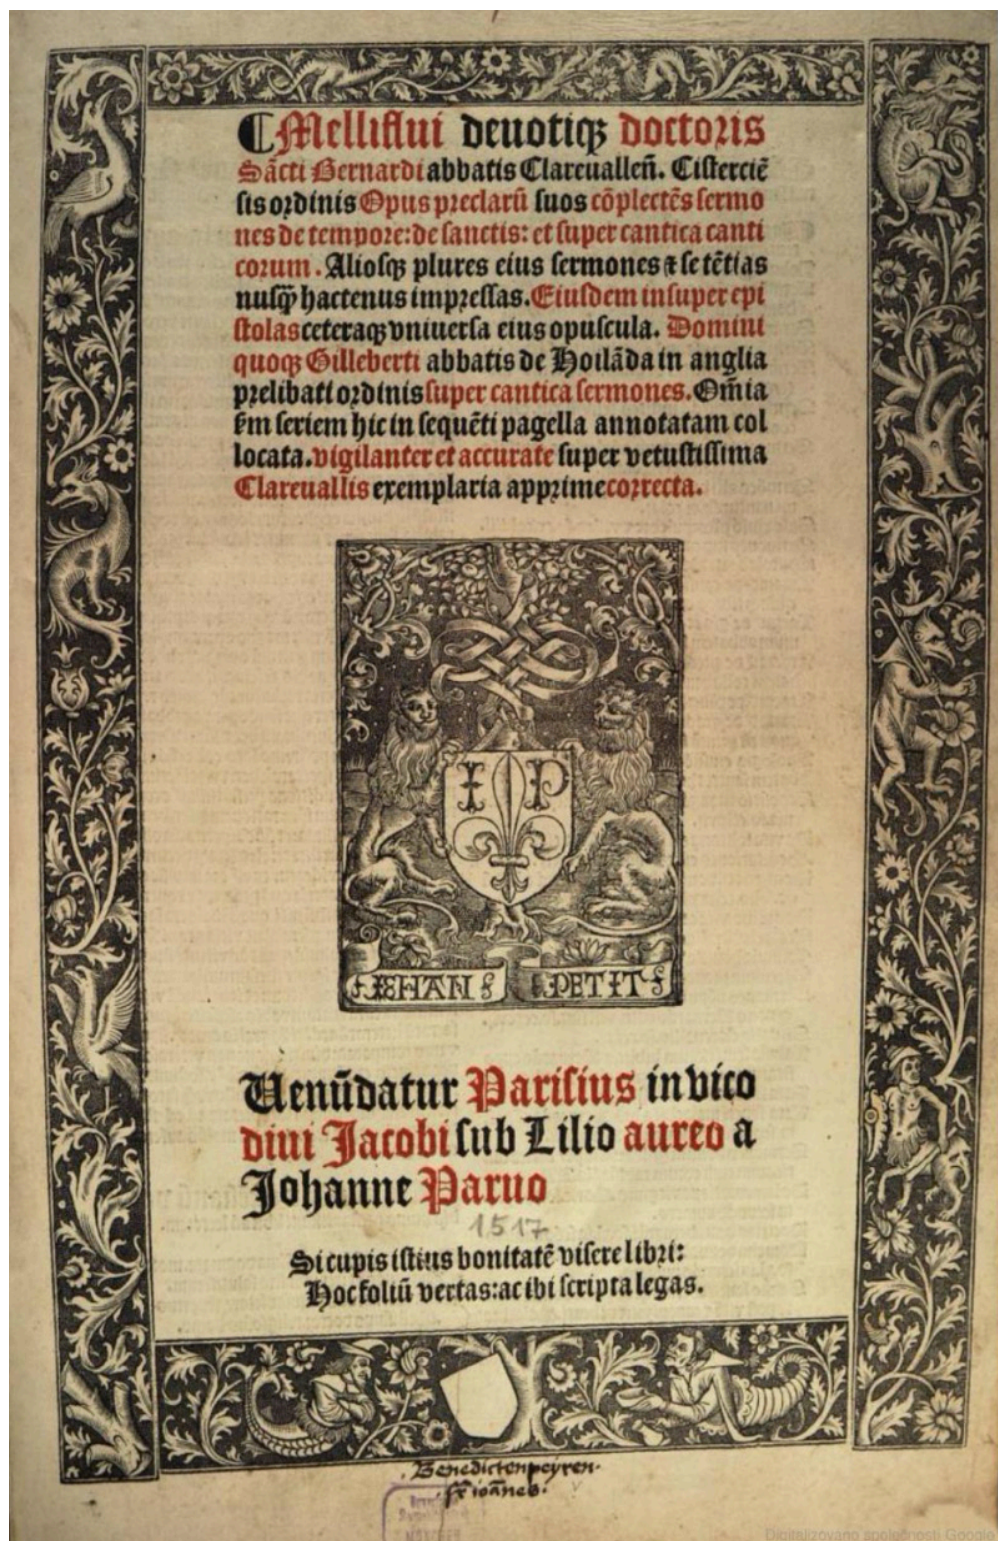 ¶Melliflui deuotiqȝ doctoris
Sācti Bernardi abbatis Clareualleñ. Cisterciē
sis ordinis Opus preclarū suos cōplectēs sermo
nes de tempore: de sanctis: et super cantica canti
corum. Aliosqȝ plures eius sermones ⁊ sētētias
nusq̄ȝ hactenus impressas. Eiusdem insuper epi
stolas ceteraqȝ vniuersa eius opuscula. Domini
quoqȝ Gilleberti abbatis de Hoilāda in anglia
prelibati ordinis super cantica sermones. Om̄ia
s̄m seriem hic in sequēti pagella annotatam col
locata. vigilanter et accurate super vetustissima
Clareuallis exemplaria apprime correcta.
I P
IEHAN PETIT
Uenūdatur Parisius in vico
diui Jacobi sub Lilio aureo a
Johanne Paruo
1517
Si cupis istius bonitatē visere libri:
Hoc foliū vertas: ac ibi scripta legas.
Benedictenpeyren.
fr̄ ioānes.
Digitalizováno společností Google